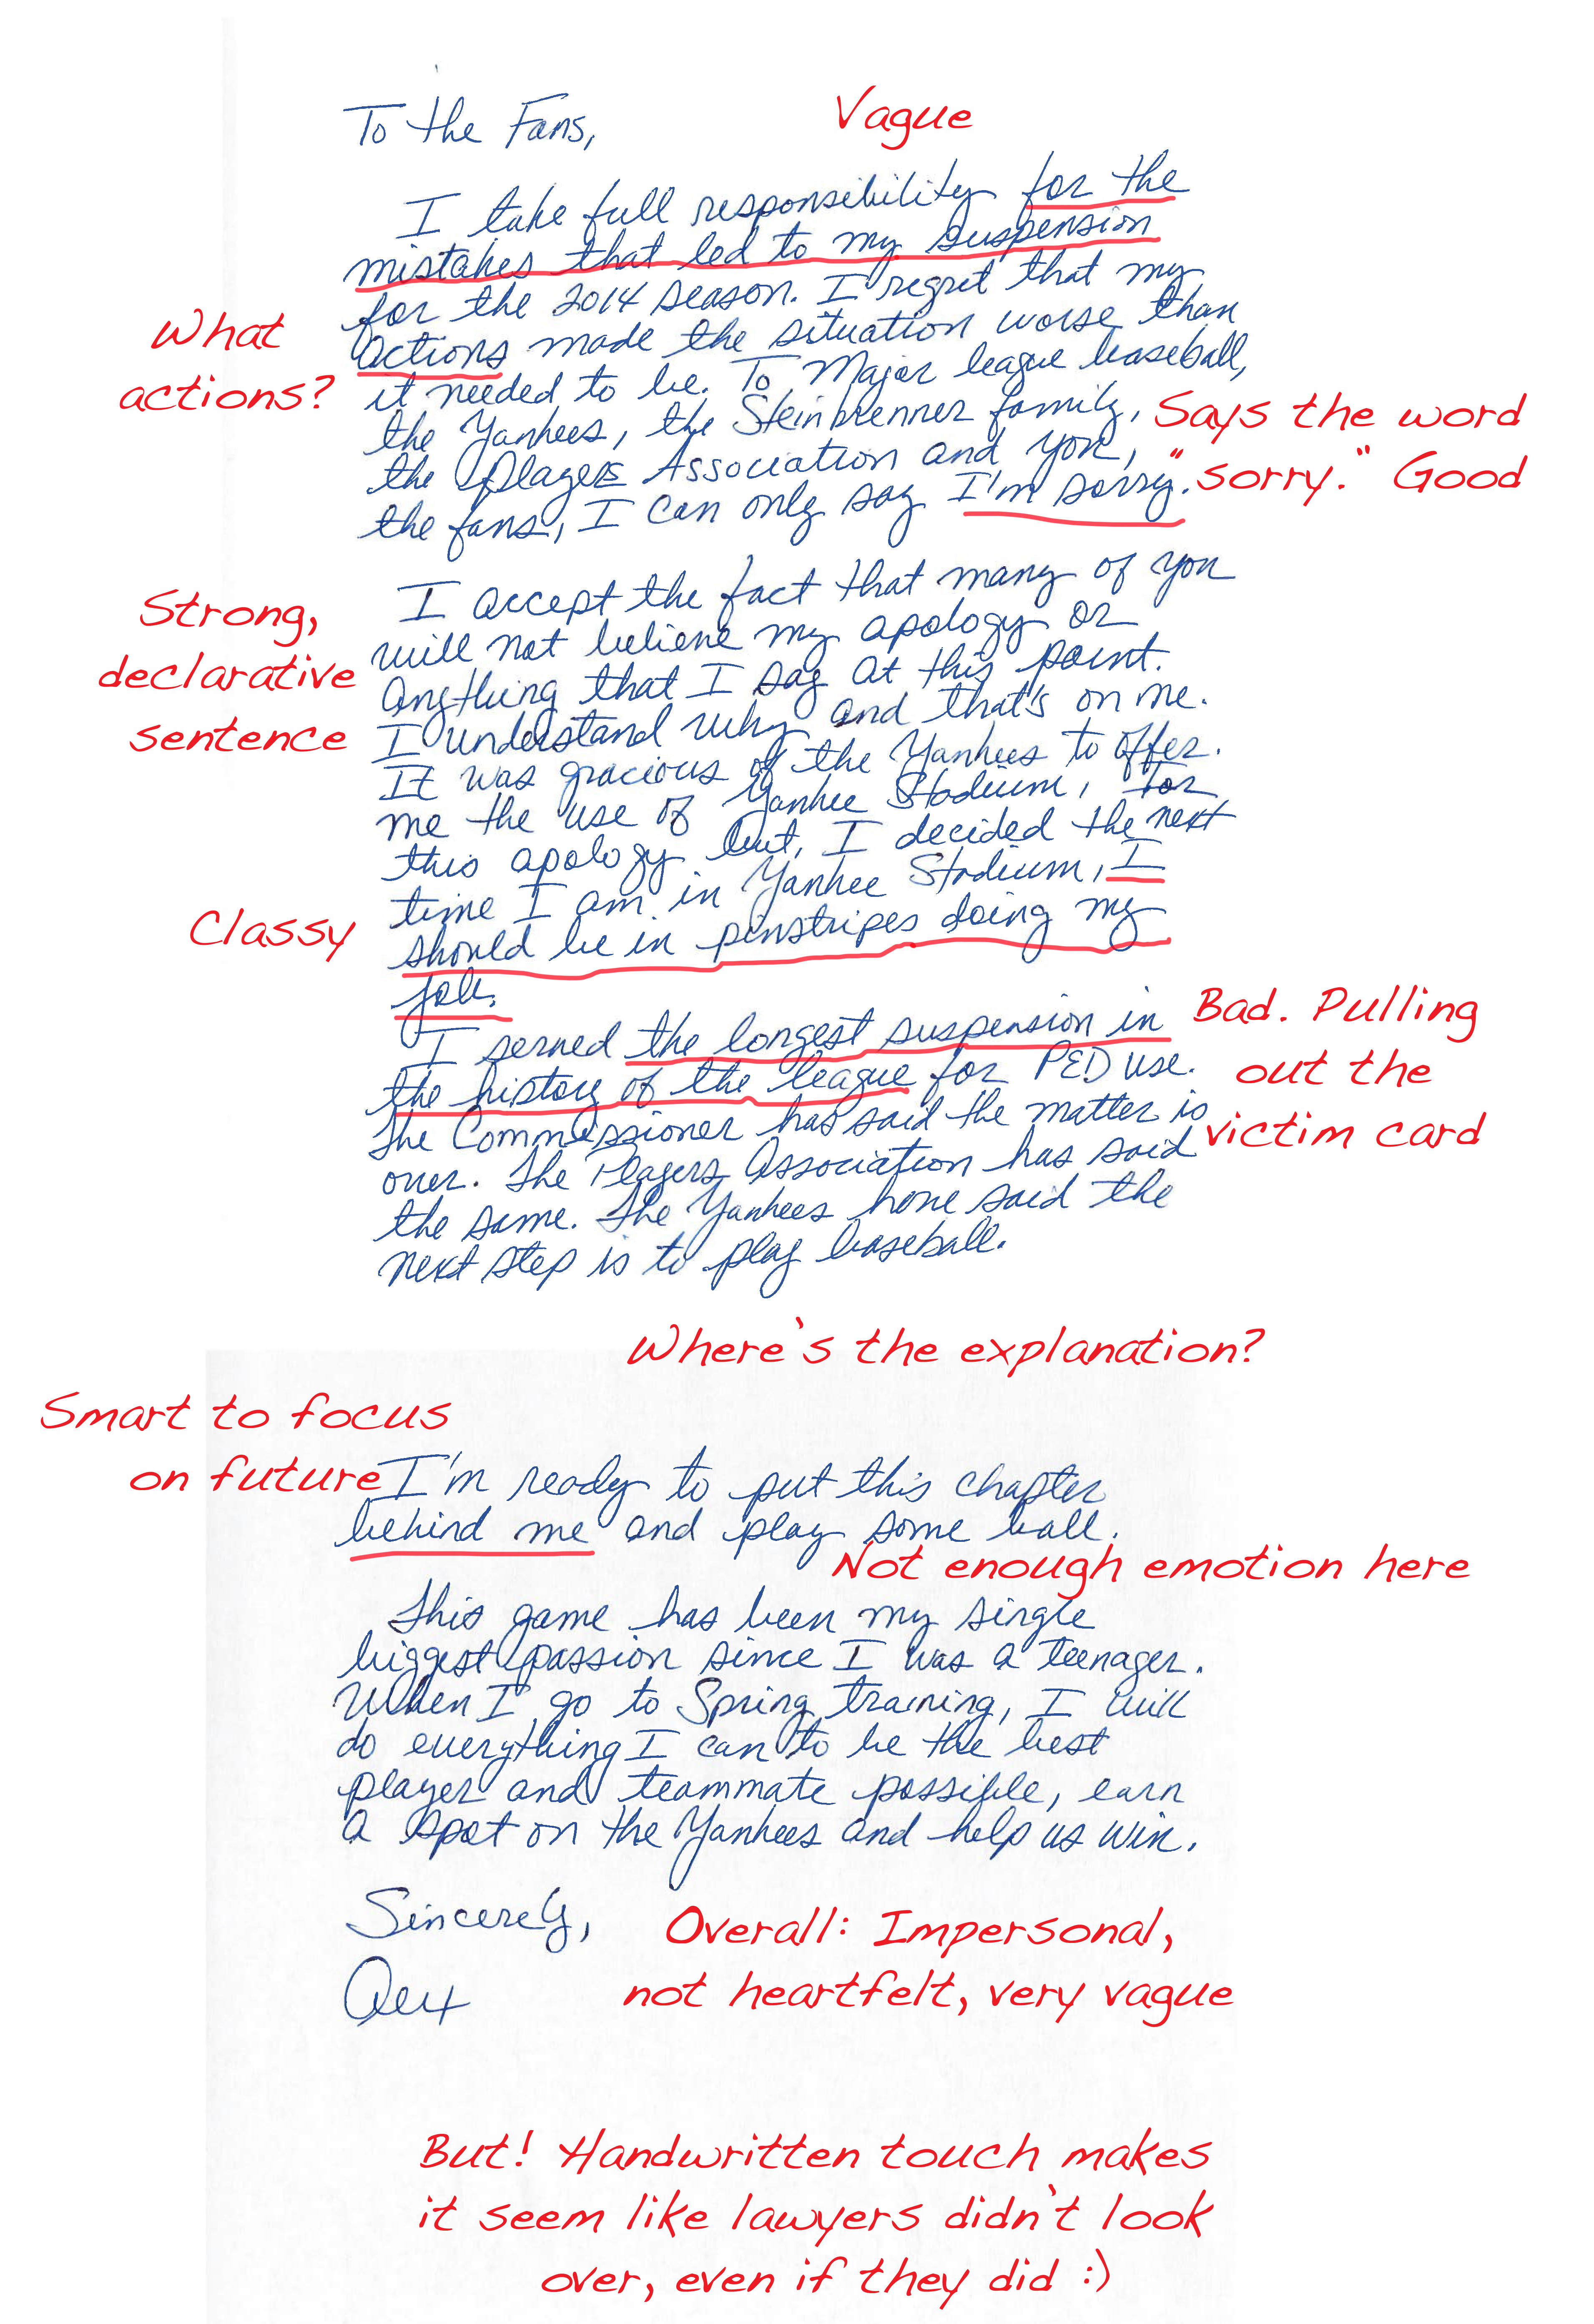 Vague
To the Fans,
I take full responsibility for the
mistakes that led to my suspension
for the 2014 season. I regret that my
What
actions?
actions made the situation worse than
it needed to be. To Major league baseball,
the Yankees, the Steinbrenner family,
the Players Association and you,
the fans, I can only say I'm sorry.
Says the word
"sorry." Good
Strong,
declarative
sentence
I accept the fact that many of you
will not believe my apology or
anything that I say at this point.
I understand why and that's on me.
It was gracious of the Yankees to offer
me the use of Yankee Stadium, for
this apology but, I decided the next
time I am in Yankee Stadium, I
should be in pinstripes doing my
job.
Classy
I served the longest suspension in
the history of the league for PED use.
The Commissioner has said the matter is
over. The Players Association has said
the same. The Yankees have said the
next step is to play baseball.
Bad. Pulling
out the
victim card
Where's the explanation?
Smart to focus
on future
I'm ready to put this chapter
behind me and play some ball.
Not enough emotion here
This game has been my single
biggest passion since I was a teenager.
When I go to Spring training, I will
do everything I can to be the best
player and teammate possible, earn
a spot on the Yankees and help us win.
Sincerely,
Alex
Overall: Impersonal,
not heartfelt, very vague
But! Handwritten touch makes
it seem like lawyers didn't look
over, even if they did :)